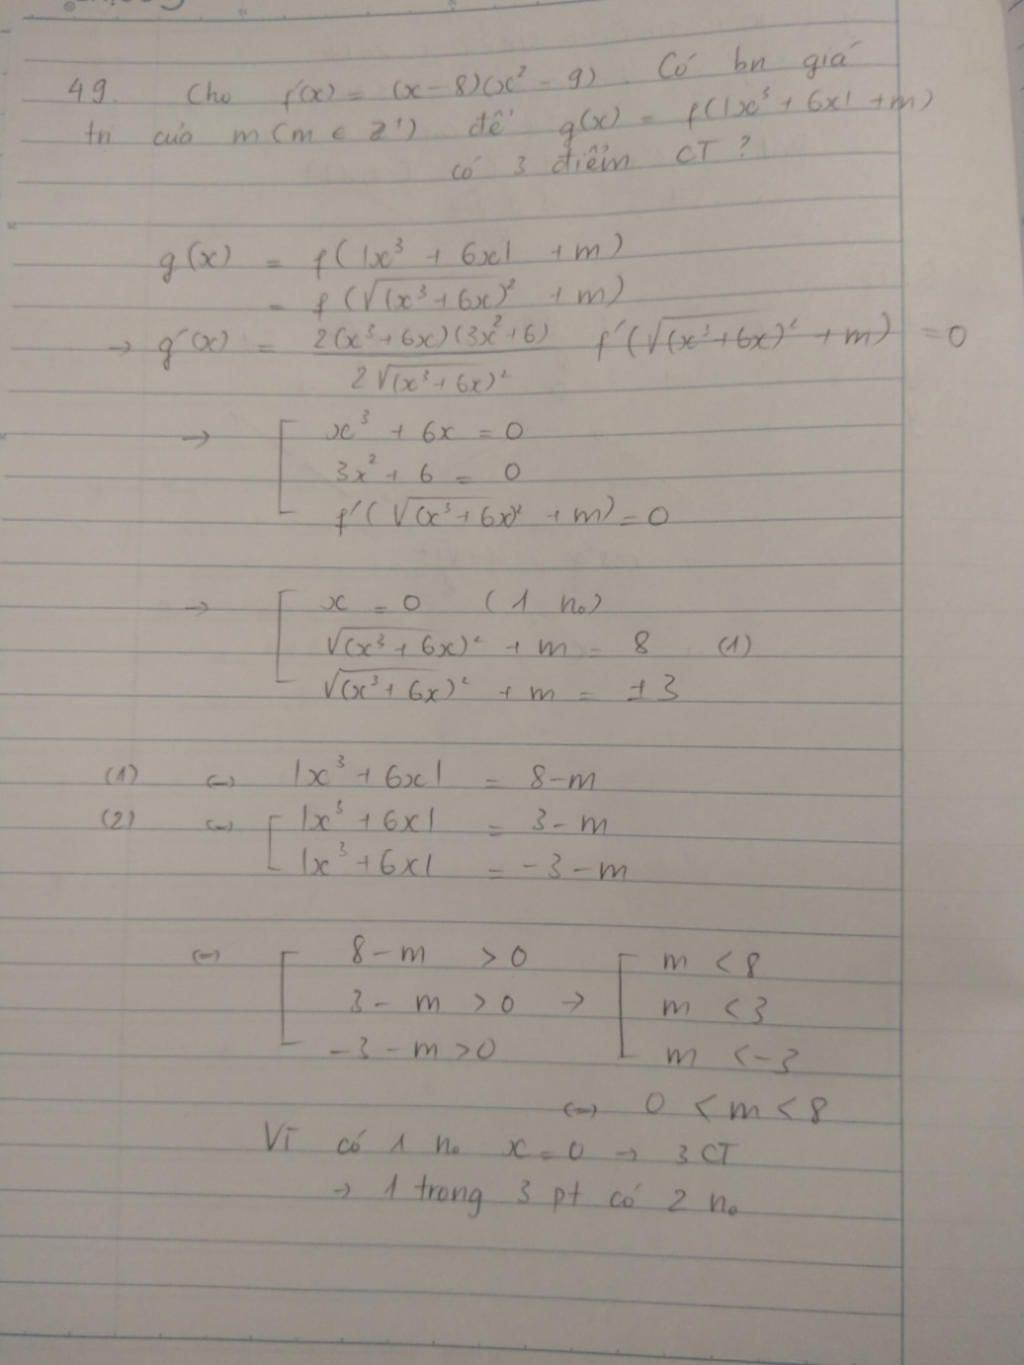 49. Cho f'(x) = (x-8)(x² - 9). Có bn giá
trị của m (m ∈ Z⁺) để g(x) = f(|x³ + 6x| + m)
có 3 điểm CT ?
g(x) = f(|x³ + 6x| + m)
= f(√(x³+6x)² + m)
→ g'(x) = 2(x³+6x)(3x²+6) / 2√(x³+6x)² f'(√(x³+6x)² + m) = 0
→ [ x³ + 6x = 0
3x² + 6 = 0
f'(√(x³+6x)² + m) = 0
→ [ x = 0 (1 no)
√(x³+6x)² + m = 8 (1)
√(x³+6x)² + m = ±3
(1) ↔ |x³ + 6x| = 8-m
(2) ↔ [ |x³ + 6x| = 3-m
|x³ + 6x| = -3-m
↔ [ 8-m > 0 [ m < 8
3-m > 0 → m < 3
-3-m > 0 m < -3
↔ 0 < m < 8
Vì có 1 no x = 0 → 3 CT
→ 1 trong 3 pt có 2 no